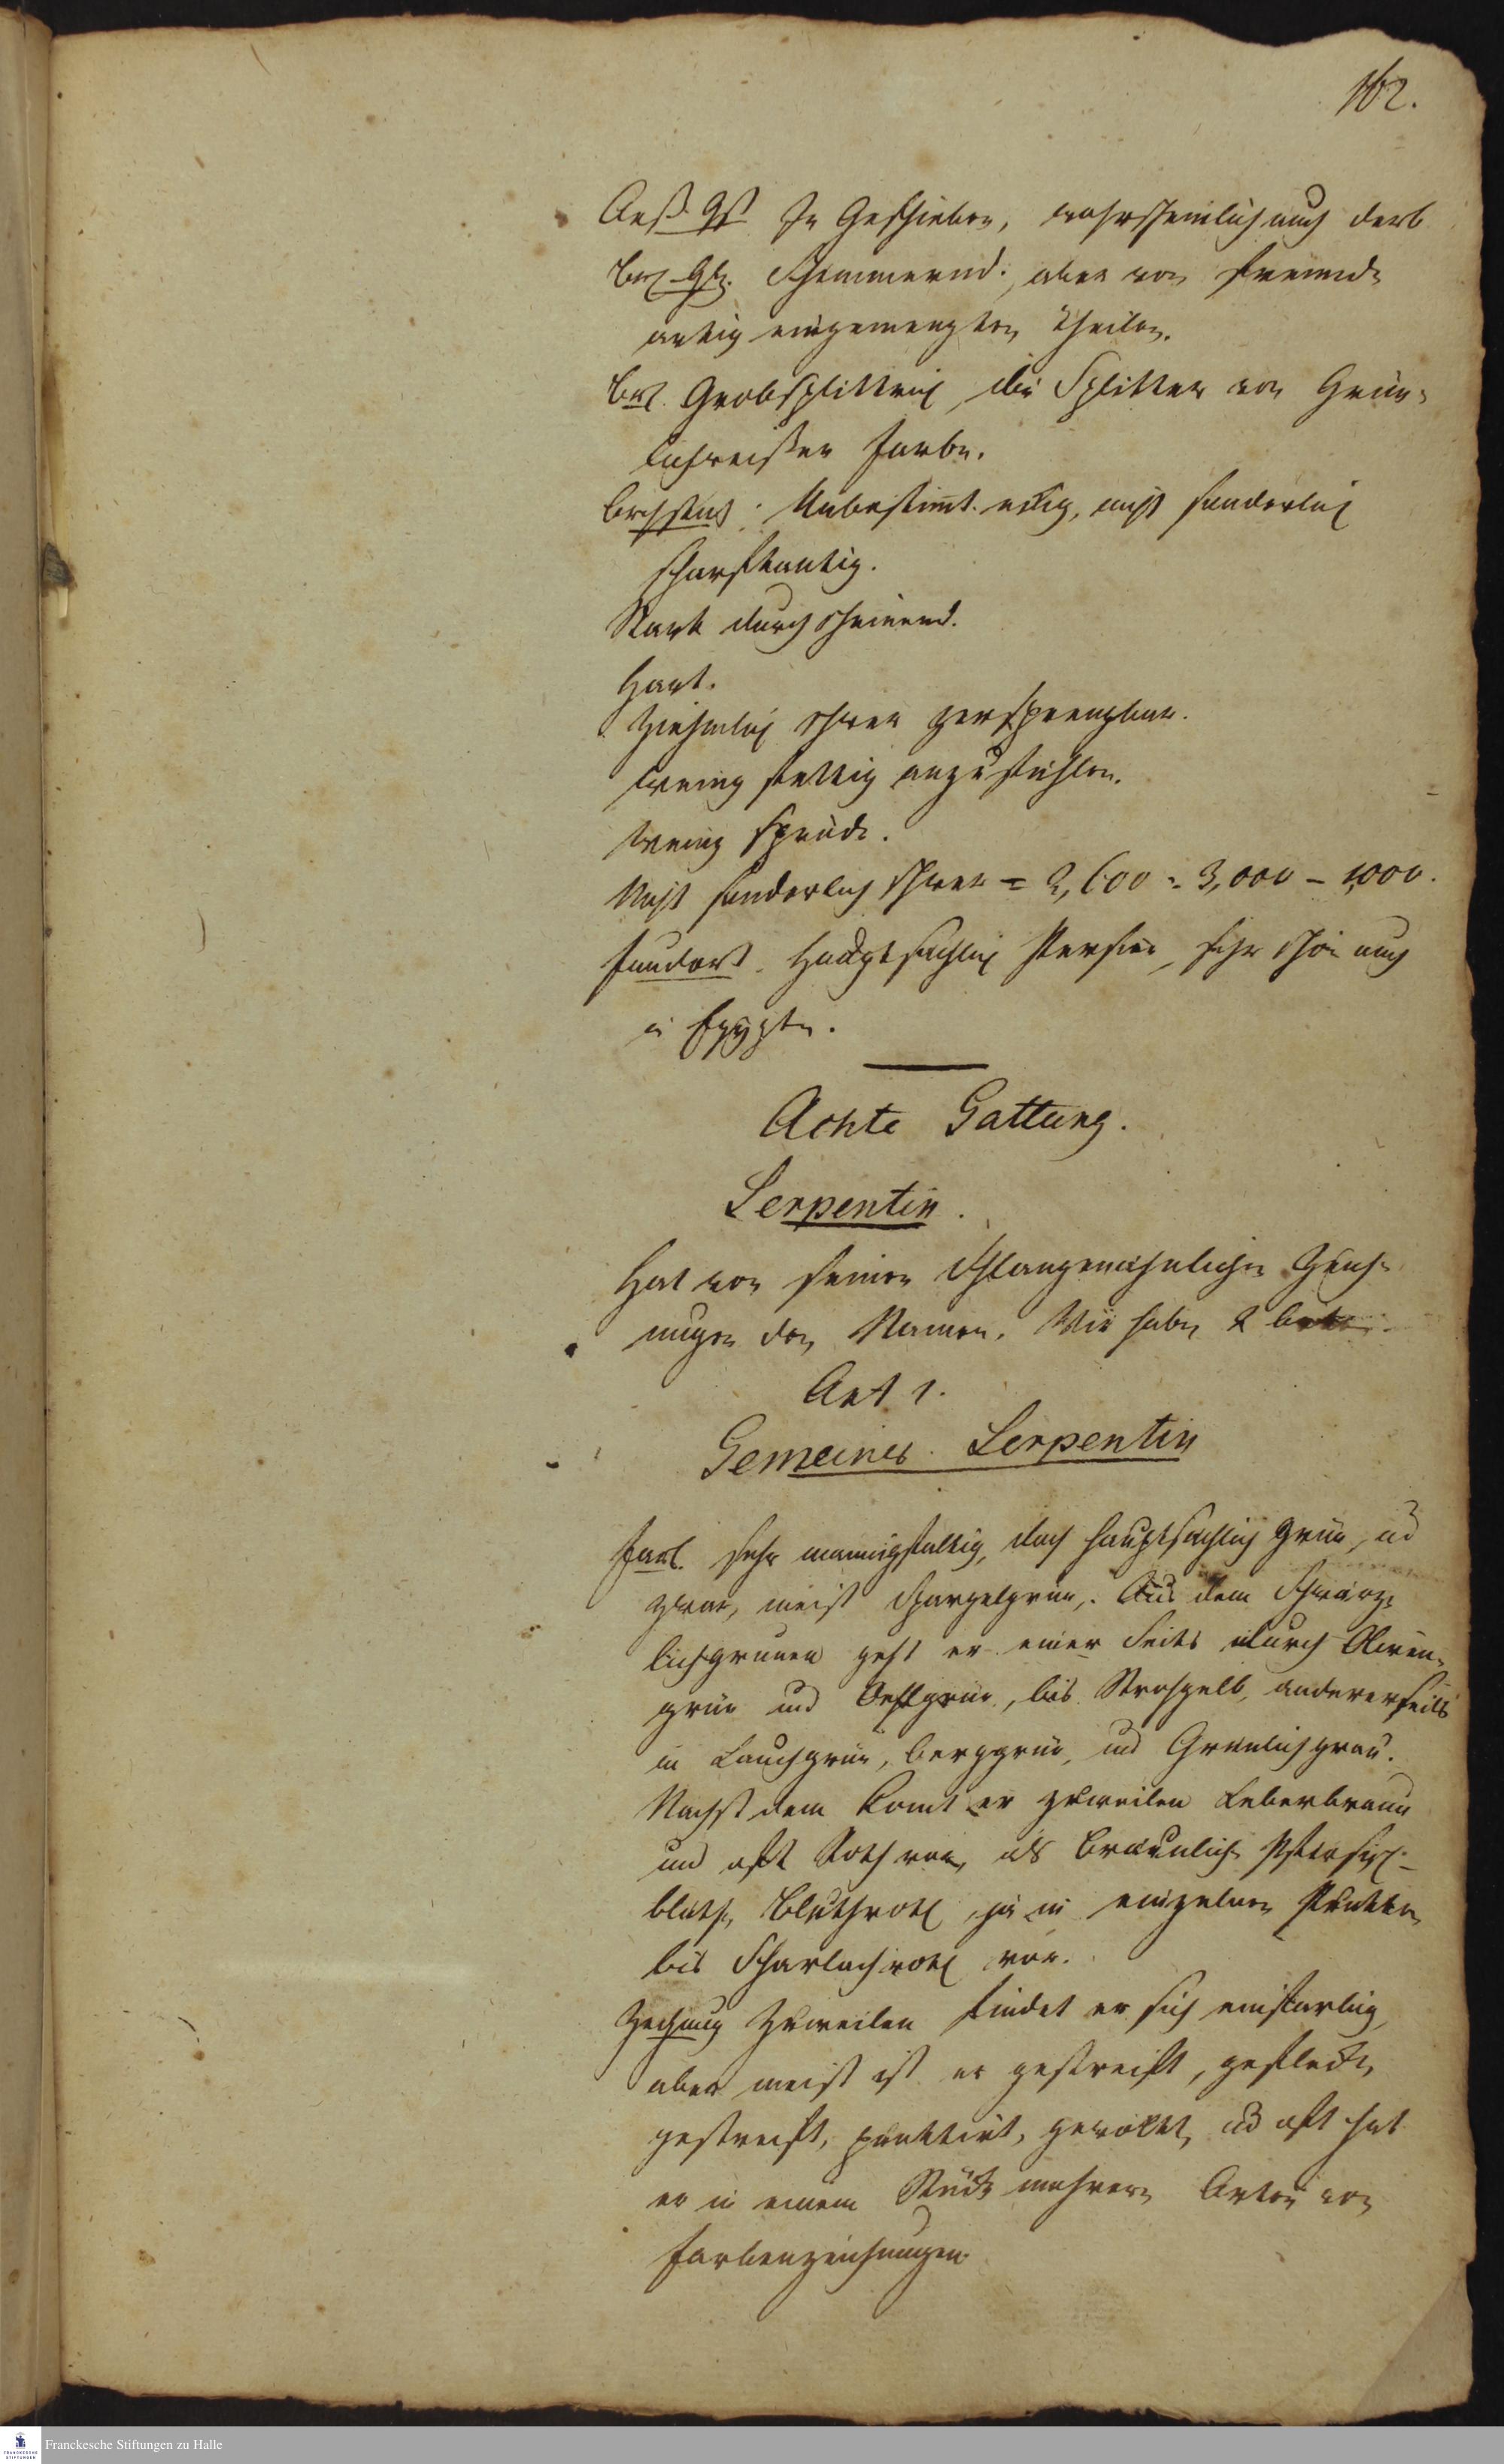 162.
Aeß Gst In Geschieben, wahrscheinlich auch derb
brch Glz. Schimmernd., aber von fremd-
artig eingemengten Theilen.
bch. Grobsplittrich die Splitter von Grün-
lichweißer Farbe.
Brchstuk: Unbestimt. ekig, nicht sonderlich
scharfkantig.
Stark durchscheinend.
Hart.
Ziehmlich schwer zersprengbar.
Wenig fettig anzufühlen.
Wenig spröde.
Nicht sonderlich schwer = 2,600 = 3,000 – 1000.
Fundort. Hauptsächlich Persien, sehr schön auch
in Egypten.
Achte Gattung.
Serpentin.
Hat von seinen Schlangenähnlichen Zeich-
nungen den Namen. Wir haben 2
Art 1.
Gemeiner Serpentin
Farb. sehr mannigfaltig, doch hauptsächlich Grün, ud
zwar, meist Spargelgrün,. Aus dem Schwärz-
lichgrünen geht er einer Seits durch Oliven-
grün und Oehlgrün, bis Strohgelb, andererseits
in Lauchgrün, berggrün, und Grünlichgrau.
Nächst dem komt er zuweilen Leberbraun
und oft Roth vor, als bräunlich Pfirsich-
blüth, Bluthroth, ja in einzelnen Punkten
bis Scharlachroth vor.
Zechnung Zuweilen findet er sich einfarbig,
aber meist ist er gestreift, gefleckt,
gestreift, punktirt, gewolkt, ud oft hat
er in einem Stück mehrere Arten von
Farbenzeichnungen.
Franckesche Stiftungen zu Halle
FRANCKESCHE STIFTUNGEN